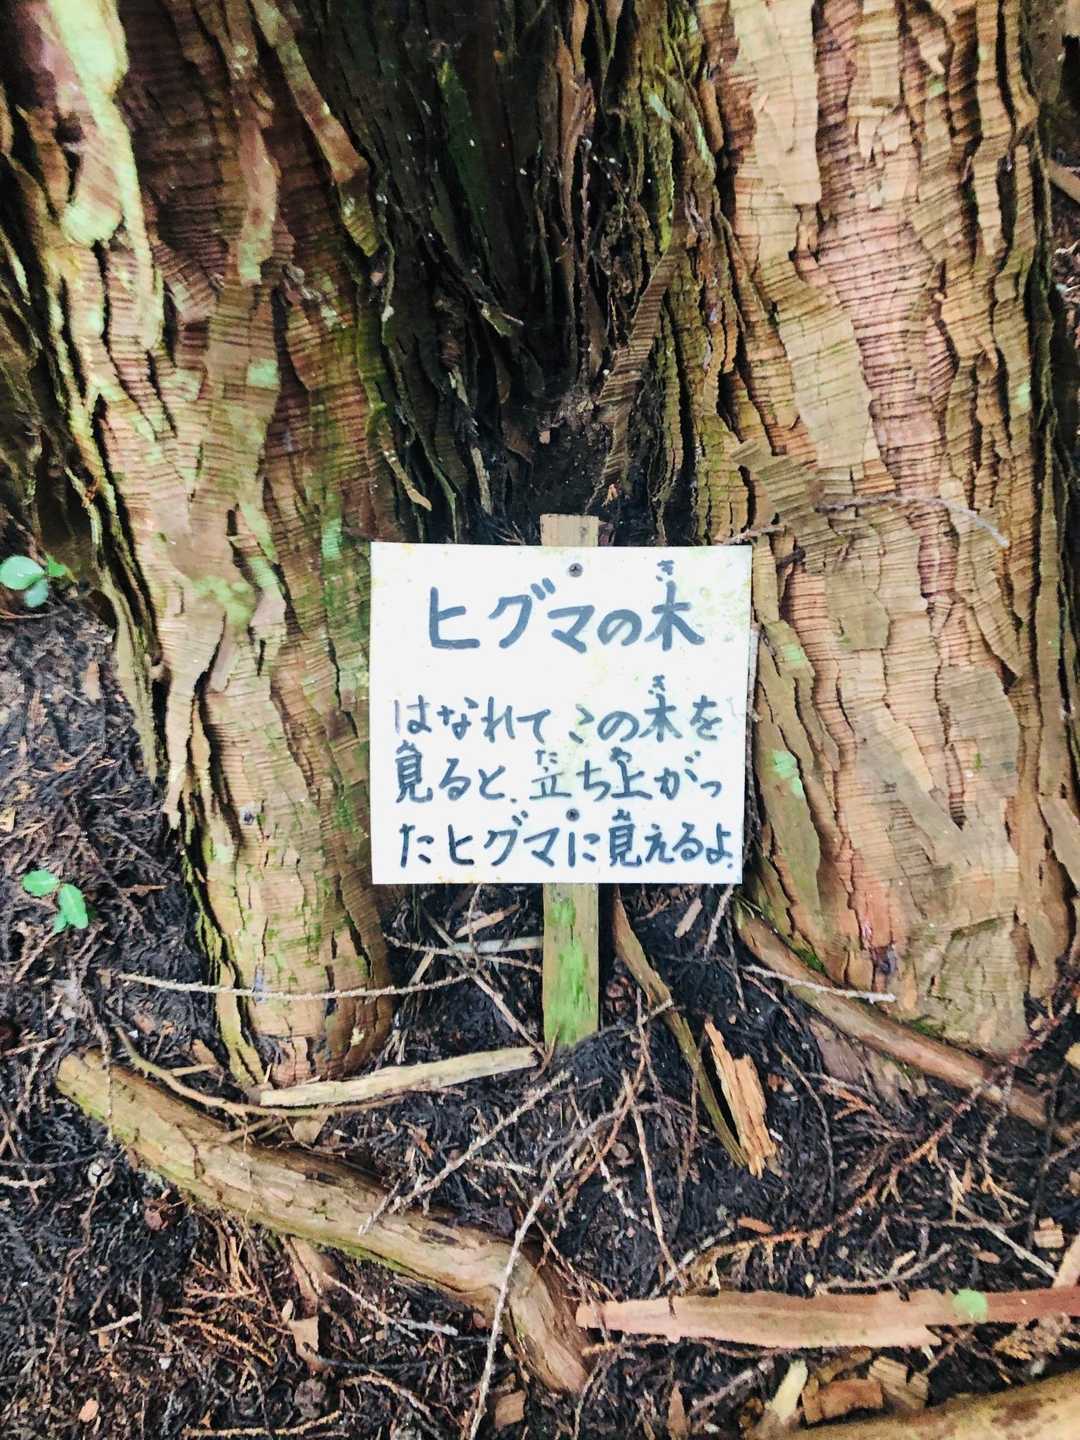 ヒグマの木
はなれてこの木を
見ると、立ち上がっ
たヒグマに見えるよ。